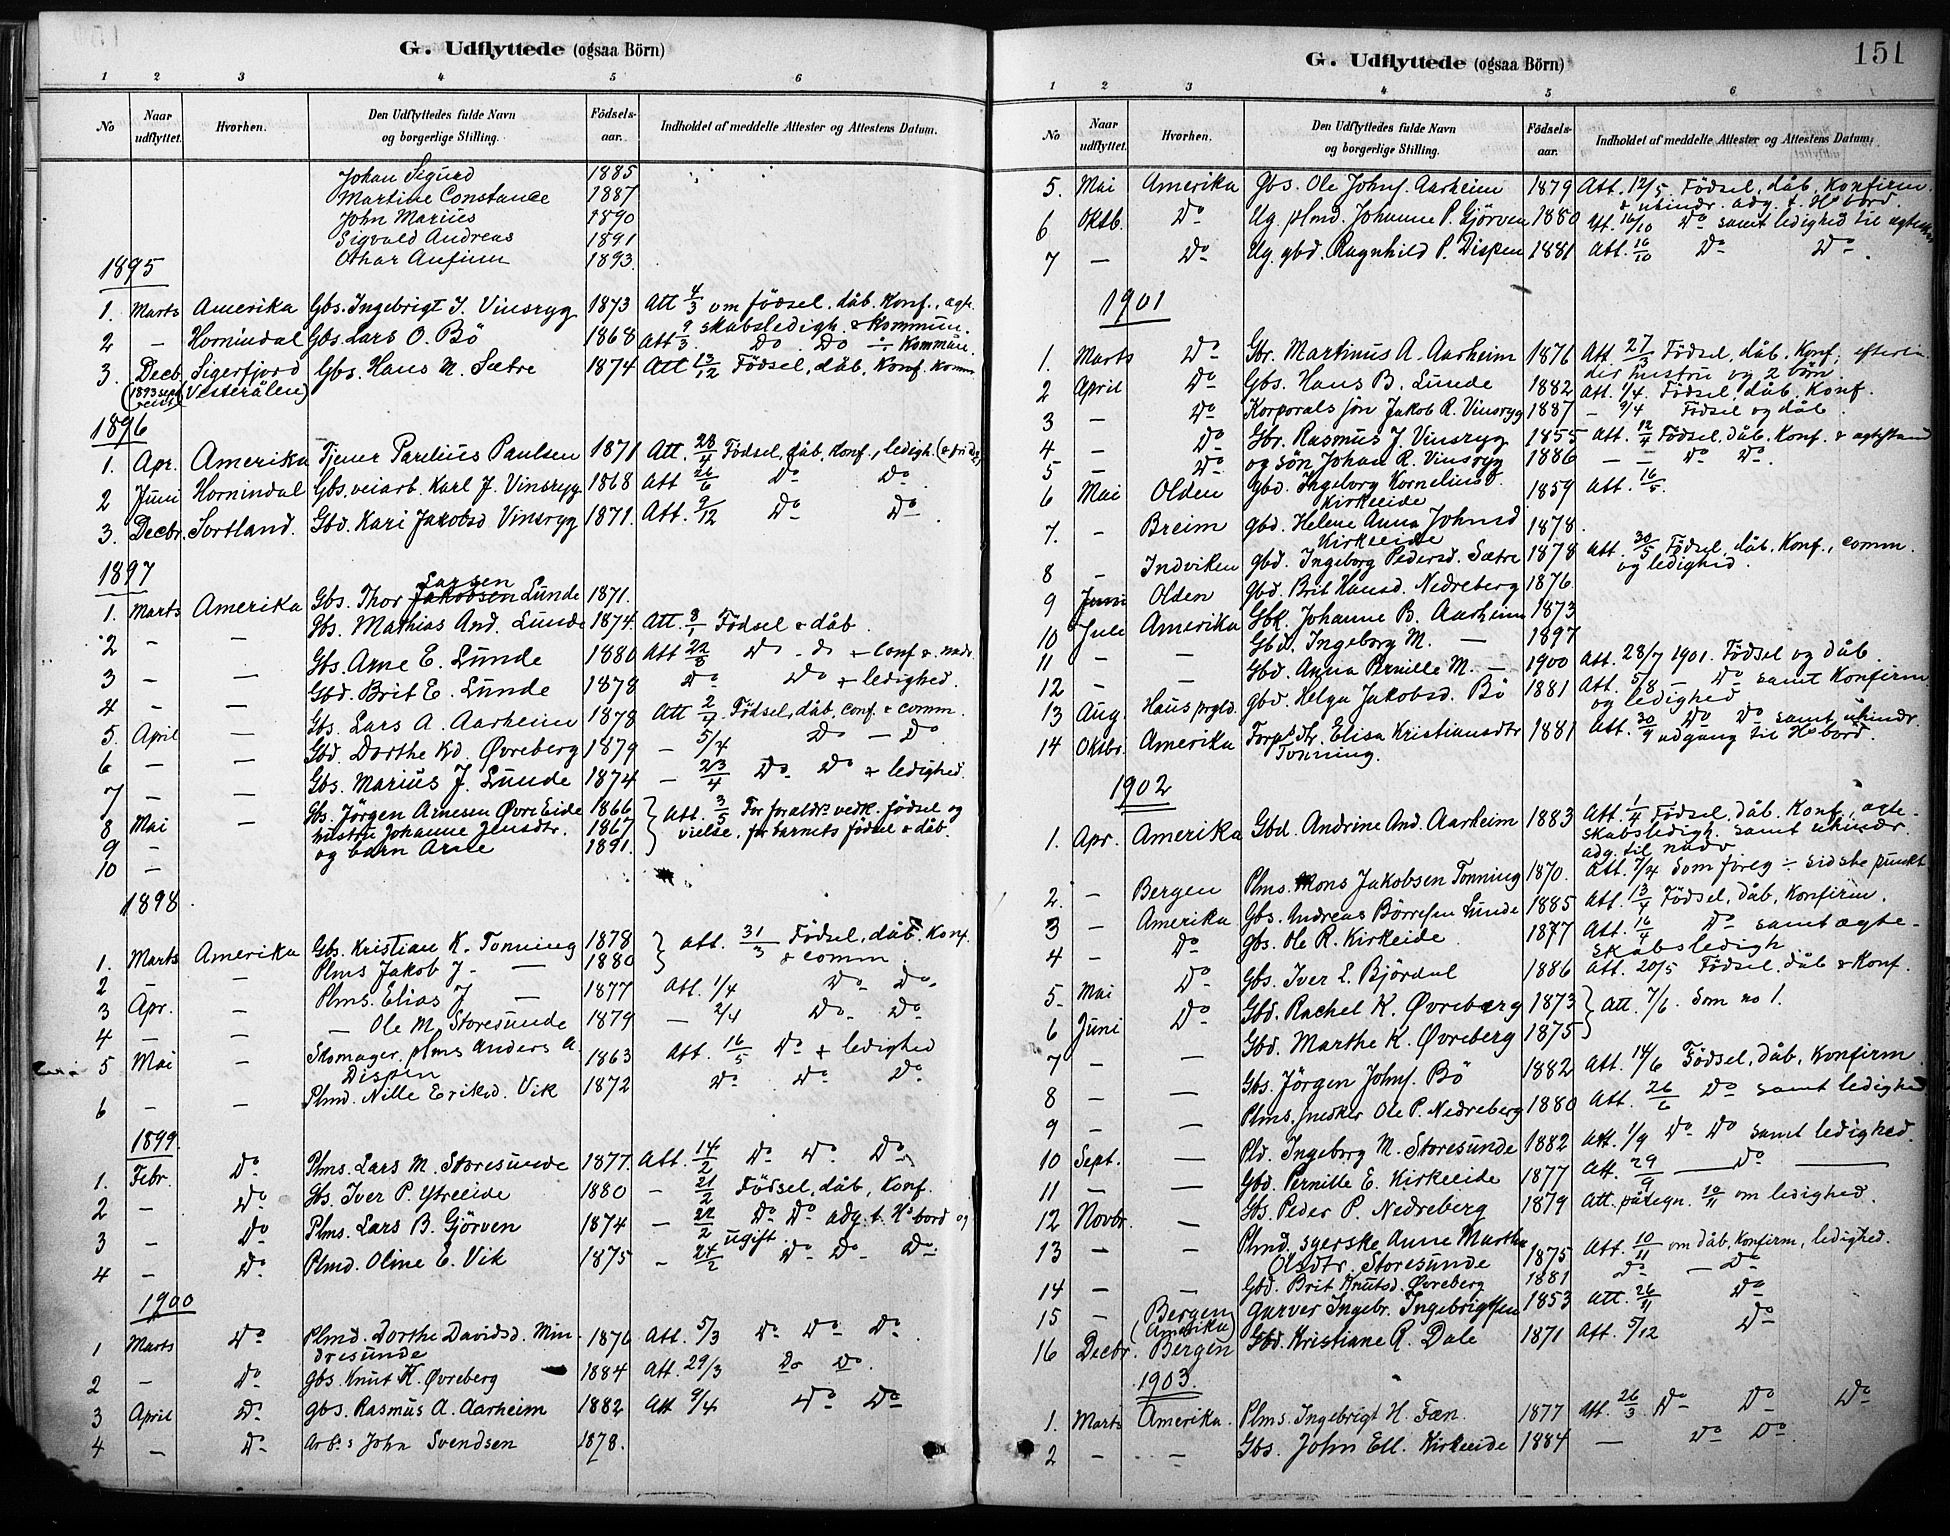 G. Udflyttede (ogsaa Börn)
1 2 3 4 5 6
No Naar udflyttet. Hvorhen. Den Udflyttedes fulde Navn og borgerlige Stilling. Födsels-aar. Indholdet af meddelte Attester og Attestens Datum.
Johan Sigurd 1885
Martine Constance 1887
John Marius 1890
Sigvald Andreas 1891
Othar Anfinn 1893
1895
1. Marts Amerika Gbs. Ingebrigt J. Vinsryg 1873 Att 4/3 om födsel, dåb, Konf., egte-
skabsledigh. & kommun.
2 — Hornindal Gbs. Lars O. Bö 1868 Att 9/3 Do Do ÷ Kommun.
3. Decb. Sigerfjord Gbs. Hans M. Sætre 1874 Att 13/12 Födsel, dåb, Konf. Komm.
(1893 reist) Vesterålen)
1896
1. Apr. Amerika Tjener Parelius Paulsen 1871 Att. 28/4 Födsel, dåb, Konf., ledigh.
2 Juni Hornindal Gbs. veiarb. Karl J. Vinsryg 1868 Att 26/6 Do Do
3. Decbr. Sortland. Gbd. Kari Jakobsd Vinsryg 1871. Att. 9/12 Do Do
1897
Larsen
1. Marts Amerika Gbs. Thor Jakobsen Lunde 1871.
2 — — Gbs. Mathias And. Lunde 1874. Att. 8/1 Födsel & dåb.
3 — — Gbs. Arne E. Lunde 1880 Att 22/3 Do - Do & conf & nadv.
4 — — Gbd. Brit E. Lunde 1878 Do Do & ledighed.
5. April — Gbs. Lars A. Aarheim 1878 Att 2/4 Födsel, dåb, conf. & comm.
6 — — Gbd. Dorthe Kd. Øvreberg 1879 — 5/4 Do — Do
7 — — Gbs. Marius J. Lunde 1874 — 23/4 Do Do & ledighed.
8 Mai — Gbs. Jörgen Arnesen Øvre Eide 1866 Att. 3/5 For foraldrs vedk. födsel og
9 — hustru Johanne Jensdtr. 1867 vielse, for barnets födsel & dåb.
10 — og barn Arne 1891.
1898.
1. Marts Amerika Gbs. Kristian K. Tonning 1878 Att. 31/3 Födsel, dåb, Konf.
2 — — Plms Jakob J. — 1880 & comm.
3 Apr. — Plms. Elias J — 1877 Att. 1/4 Do Do
4 — — — Ole M. Storesunde 1879 — 2/4 Do Do
5 Mai — Skomager. plms Anders A. 1863 Att. 16/5 Do & ledighed
Dispen
6 — — Plmd. Nille Eriksd. Vik 1872 Do Do Do
1899.
1. Febr. Do Plms. Lars M. Storesunde 1877. Att. 14/2 Do Do Do
2 — Do Gbs. Iver P. Ytreeide 1880 — 21/2 Födsel, dåb, Konf.
3 — Do Plms. Lars B. Gjörven 1874 — 22/2 Do Do adg. t. Hs bord og
ugift.
4 — Do Plmd. Oline E. Vik 1875 — 24/2 Do Do Do
1900
1 Marts Do Plmd. Dorthe Davidsd. Min- 1876 Att. 5/3 Do Do Do
dresunde
2 — Do Gbs. Knut K. Øvreberg 1884 Att. 29/3 Do Do.
3 April Do Gbs. Rasmus A. Aarheim 1882 Att 9/4 Do Do
4 — Do Arb.s John Svendsen 1878.
G. Udflyttede (ogsaa Börn) 151
1 2 3 4 5 6
No Naar udflyttet. Hvorhen. Den Udflyttedes fulde Navn og borgerlige Stilling. Födsels-aar. Indholdet af meddelte Attester og Attestens Datum.
5. Mai Amerika Gbs. Ole Johns. Aarheim 1879 Att. 12/5 Födsel, dåb, Konfirm.
& uhindr. adg. t. Hs bord.
6 Oktb. Do Ug. plmd. Johanne P. Gjörven 1880 Att. 16/10 Do samt ledighed til egtesk.
7 — Do Ug. gbd. Ragnhild P. Dispen 1881 Att. 16/10 Do Do.
1901
1. Marts Do Gbr. Martinus A. Aarheim 1876 Att. 27/3 Födsel, dåb, Konf.; efterla-
der hustru og 2 börn.
2 April Do Gbs. Hans B. Lunde 1882 Att. 1/4. Födsel, dåb, Konf.
3 — Do Korporals sön Jakob R. Vinsryg 1887 — 9/4 Födsel og dåb.
4 — Do Gbr. Rasmus J. Vinsryg 1855 Att. 12/4 Födsel, dåb, Konf. & egtestand
5 — Do og sön Johan R. Vinsryg 1886 — — Do Do.
6 Mai Olden Gbd. Ingeborg Korneliusd. 1859 Att. 16/5.
Kirkeeide
7. — Breim Gbd. Helene Anna Johnsd 1878.
Kirkeeide
8 — Indviken Gbd. Ingeborg Pedersd. Sætre 1878 Att. 30/5 Födsel, dåb, Konf., comm.
og ledighed.
9 Juni Olden Gbd. Brit Hansd. Nedreberg 1876
10 Juli Amerika Gbk. Johanne B. Aarheim 1873
11 — — Gbd. Ingeborg M. — 1897
12 — — Gbd. Anna Pernille M. — 1900 Att. 28/7 1901. Födsel og dåb.
13 Aug. Haus prgld. Gbd. Helga Jakobsd. Bö 1881 Att. 5/8 — Do samt Konfirm.
og ledighed
14 Oktbr. Amerika Forpl. dtr. Elisa Kristiansdtr 1881 Att. 30/9 Do Do samt uhindr.
Tonning. adgang til Hs bord.
1902
1. Apr. Amerika Gbd. Andrine And. Aarheim 1883 Att. 1/4 Födsel, dåb, Konf., egte-
skabsledigh. samt uhindr.
adg. til nadv
2. — Bergen Plms. Mons Jakobsen Tonning 1870. Att. 7/4 Som foreg. ÷ sidste punkt
3 — Amerika Gbs. Andreas Börresen Lunde 1885 Att. 13/4 Födsel, Dåb, Konfirm.
4 — Do Gbs. Ole R. Kirkeeide. 1877 Att. 16/4 Do samt egte-
skabsledigh
5. Mai Do Gbs. Iver L. Björdal 1886 Att. 20/5 Födsel, dåb & Konf.
6 Juni Do Gbd. Rachel K. Øvreberg 1873 Att. 7/6. Som no 1.
7 — — Gbd. Marthe K. Øvreberg 1875
8 — — Gbs. Jörgen Johns. Bö 1882 Att. 14/6 Födsel, dåb, Konfirm.
9 — — Plms. snedker Ole P. Nedreberg 1880 Att. 26/6 Do samt ledighed
10 Sept. — Pld. Ingeborg M. Storesunde 1882 Att. 1/9 Do Do samt ledighed.
11 — — Gbd. Pernille E. Kirkeeide 1877 Att. 29/9 — Do —
12 Novbr. — Gbs. Peder P. Nedreberg 1879 Att. påtegn. 10/11 om ledighed.
13 — — Plmd. syerske Anne Marthe
Olsdtr. Storesunde 1875 Att. 10/11 om dåb, Konfirm, ledighed.
14 — — Gbd. Brit Knutsd. Øvreberg 1881 Do — Do
15 — Bergen Garver Ingebr. Ingebrigtsen 1853 Att. 26/11 Do
(Amerika)
16 Decbr. Bergen Gbd. Kristiane R. Dale 1871 Att. 5/12 Do
1903.
1. Marts Amerika. Plms. Ingebrigt H. Fæn. 1877 Att. 26/3 Do Do Do
2 — — Gbs. John Ell. Kirkeeide 1884 — Do Do.